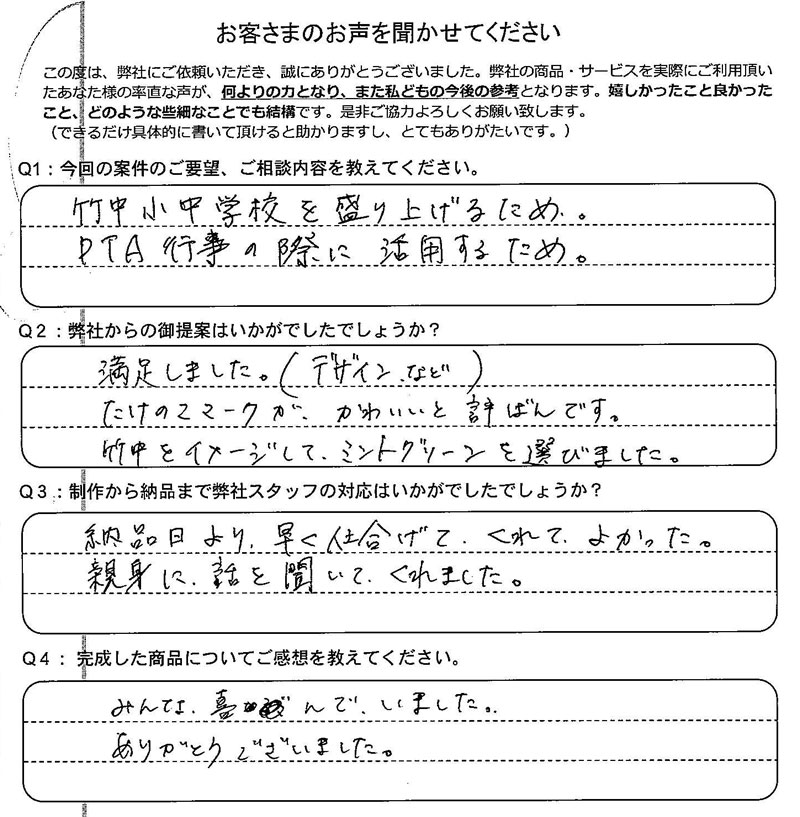 お客さまのお声を聞かせてください
この度は、弊社にご依頼いただき、誠にありがとうございました。弊社の商品・サービスを実際にご利用頂い
たあなた様の率直な声が、何よりの力となり、また私どもの今後の参考となります。嬉しかったこと良かった
こと、どのような些細なことでも結構です。是非ご協力よろしくお願い致します。
（できるだけ具体的に書いて頂けると助かりますし、とてもありがたいです。）
Q1：今回の案件のご要望、ご相談内容を教えてください。
竹中小中学校を盛り上げるため。
PTA行事の際に活用するため。
Q2：弊社からの御提案はいかがでしたでしょうか？
満足しました。（デザイン、など）
たけのこマークが、かわいいと評ばんです。
竹中をイメージして、ミントグリーンを選びました。
Q3：制作から納品まで弊社スタッフの対応はいかがでしたでしょうか？
納品日より、早く仕合げて、くれて、よかった。
親身に、話を聞いて、くれました。
Q4：完成した商品についてご感想を教えてください。
みんな、喜んで、いました。
ありがとうございました。